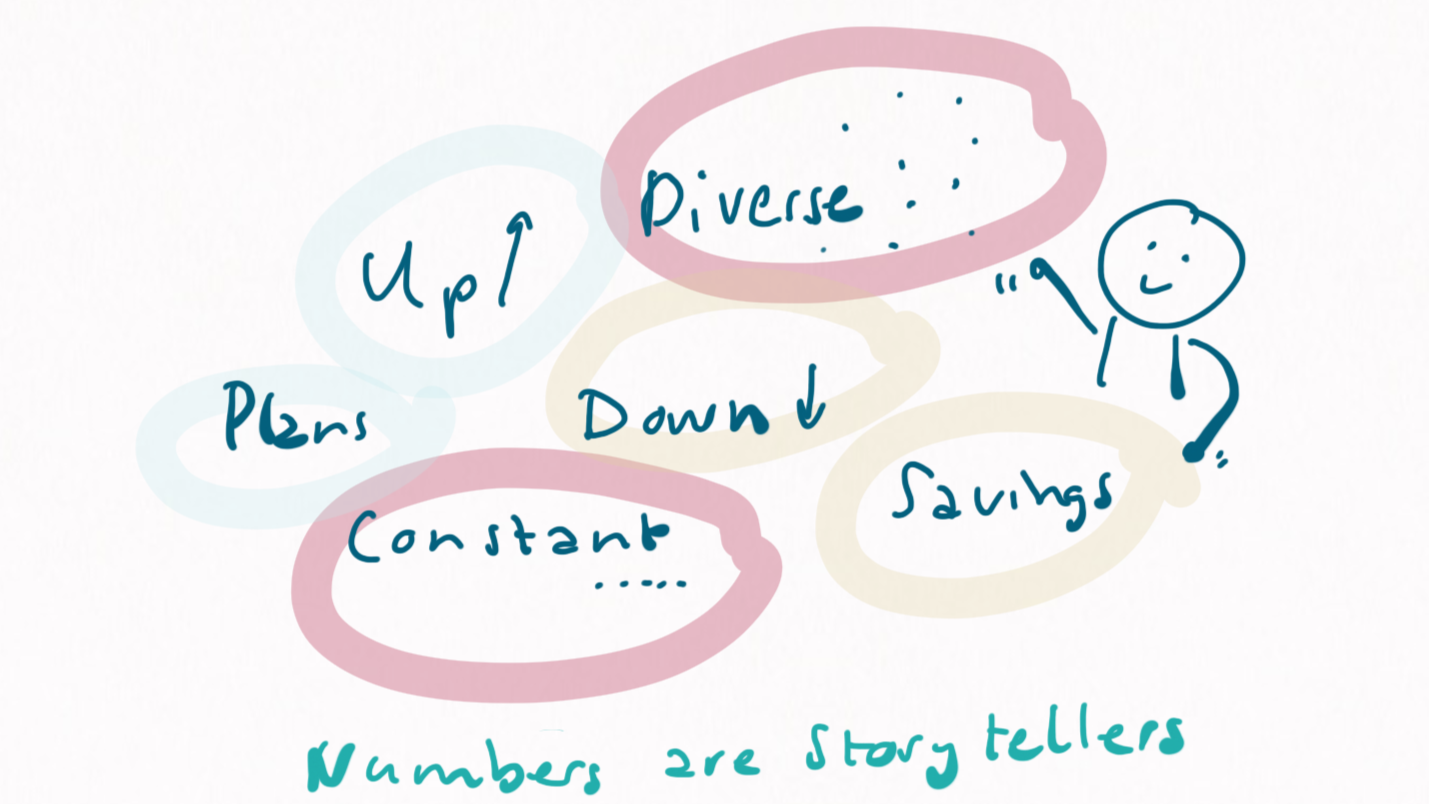 Diverse
Up ↑
Plans
Down ↓
Savings
Constant
Numbers are Story tellers